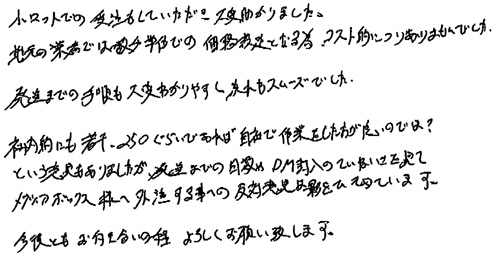 小ロットでの受注もしていただき大変助かりました。
地元の業者では数千単位での価格設定となる為、コスト的につりあいませんでした。
発送までの手順も大変わかりやすく、流れもスムーズでした。
社内的にも若干、250ぐらいであれば自社で作業をした方が良いのでは？
という意見もありましたが、発送までの日数や DM封入のていねいさを見て
メディアボックス様へ外注する事への反対意見は影をひそめています。
今後ともお付き合いの程 よろしくお願い致します。